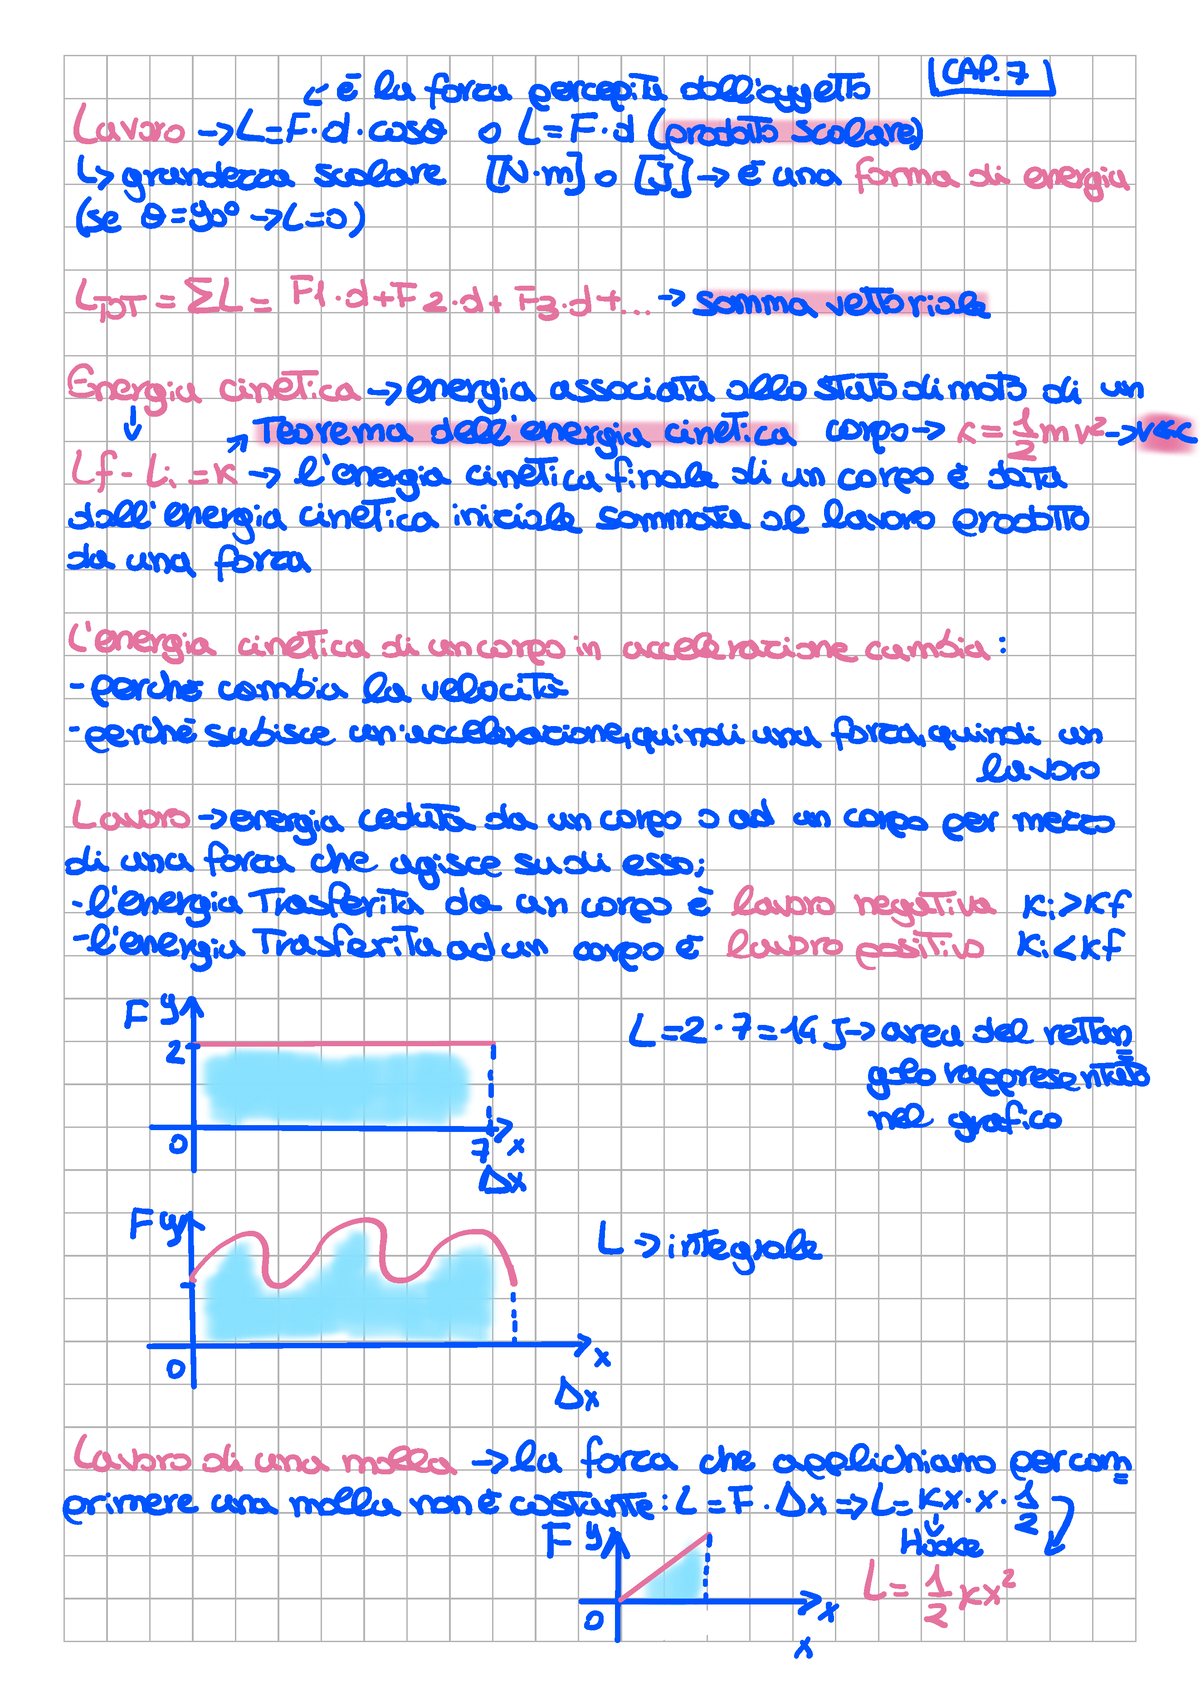 CAP. 7
↙ è la forza percepita dall'oggetto
Lavoro → L=F·d·cosθ o L=F·d (prodotto scalare)
↳ grandezza scalare [N·m] o [J] → è una forma di energia
(se θ=90° → L=0)
L TOT = ΣL = F1·d+F2·d+F3·d+... → somma vettoriale
Energia cinetica → energia associata allo stato di moto di un
↓ ↗ Teorema dell'energia cinetica corpo → K=1/2mv² → v<<c
Lf - Li = K → l'energia cinetica finale di un corpo è data
dall'energia cinetica iniziale sommata al lavoro prodotto
da una forza
L'energia cinetica di un corpo in accelerazione cambia:
-perchè cambia la velocità
-perchè subisce un'accelerazione, quindi una forza, quindi un
lavoro
Lavoro → energia ceduta da un corpo o ad un corpo per mezzo
di una forza che agisce su di esso;
-l'energia trasferita da un corpo è lavoro negativo Ki>Kf
-l'energia trasferita ad un corpo è lavoro positivo Ki<Kf
F y
2
0
7 x
Δx
L=2·7=14 J → area del rettan
golo rappresentato
nel grafico
F y
0
x
Δx
L → integrale
Lavoro di una molla → la forza che applichiamo per com
primere una molla non è costante: L=F·Δx ⇒ L=Kx·x·1/2
Hooke
F y
0
x
x
L=1/2 Kx²